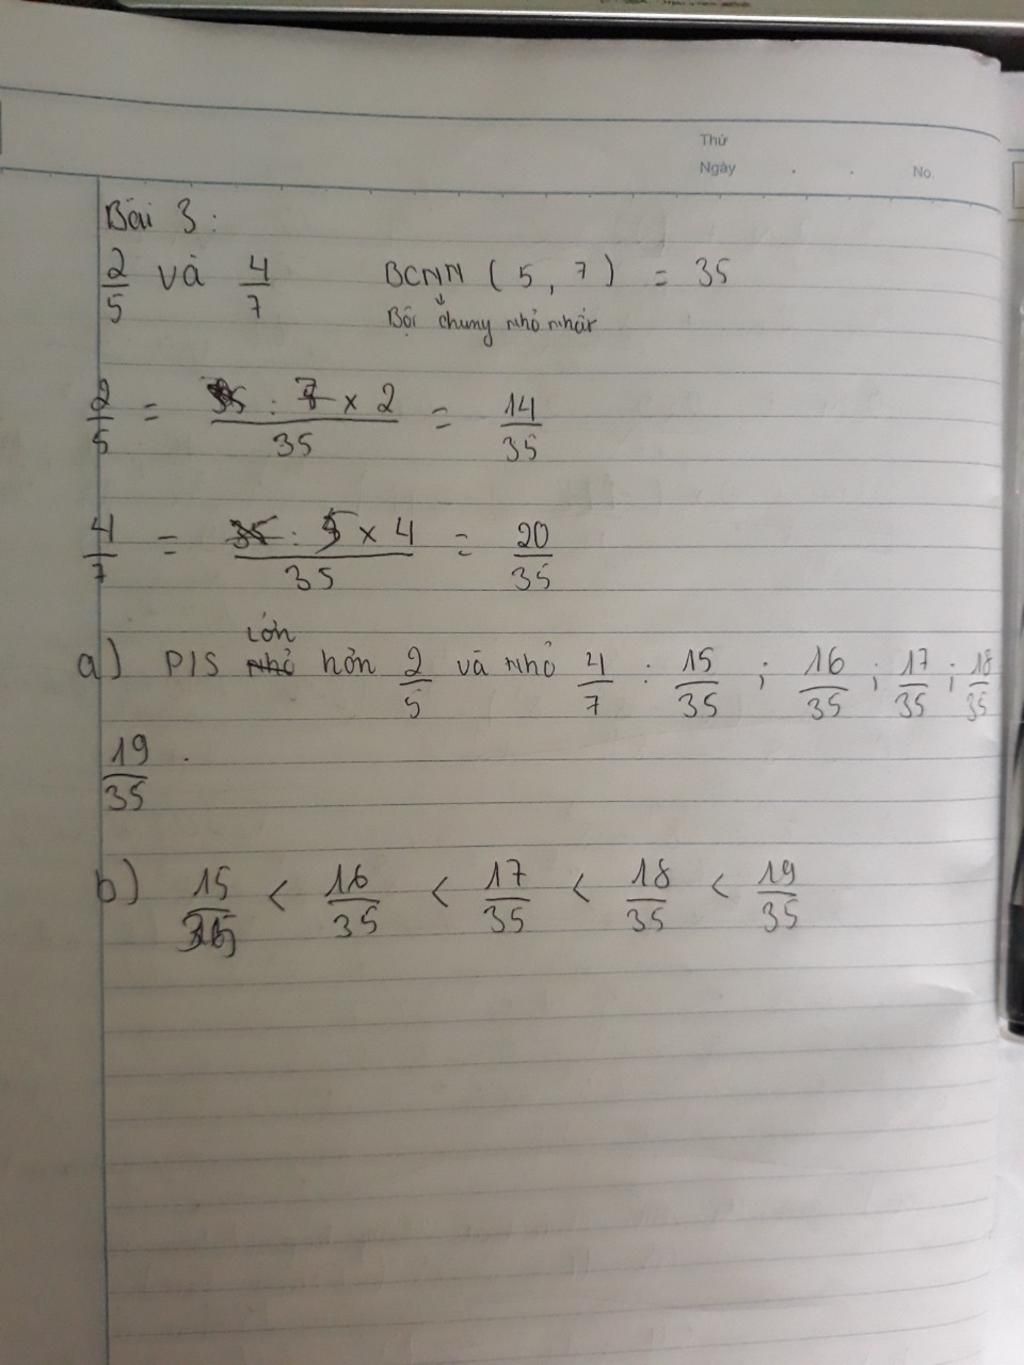 Thứ
Ngày . . No.
Bài 3:
2/5 và 4/7 BCNN (5, 7) = 35
Bội chung nhỏ nhất
2/5 = 7 x 2 / 35 = 14/35
4/7 = 5 x 4 / 35 = 20/35
lớn
a) P/S nhỏ hơn 2/5 và nhỏ 4/7 : 15/35 ; 16/35 ; 17/35 ; 18/35
19/35 .
b) 15/35 < 16/35 < 17/35 < 18/35 < 19/35